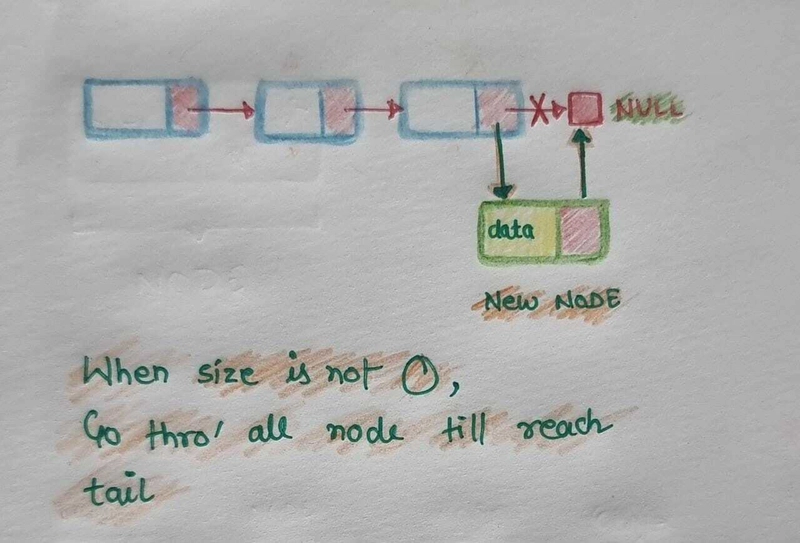 NULL
data
New NODE
When size is not 0,
Go thro' all node till reach
tail